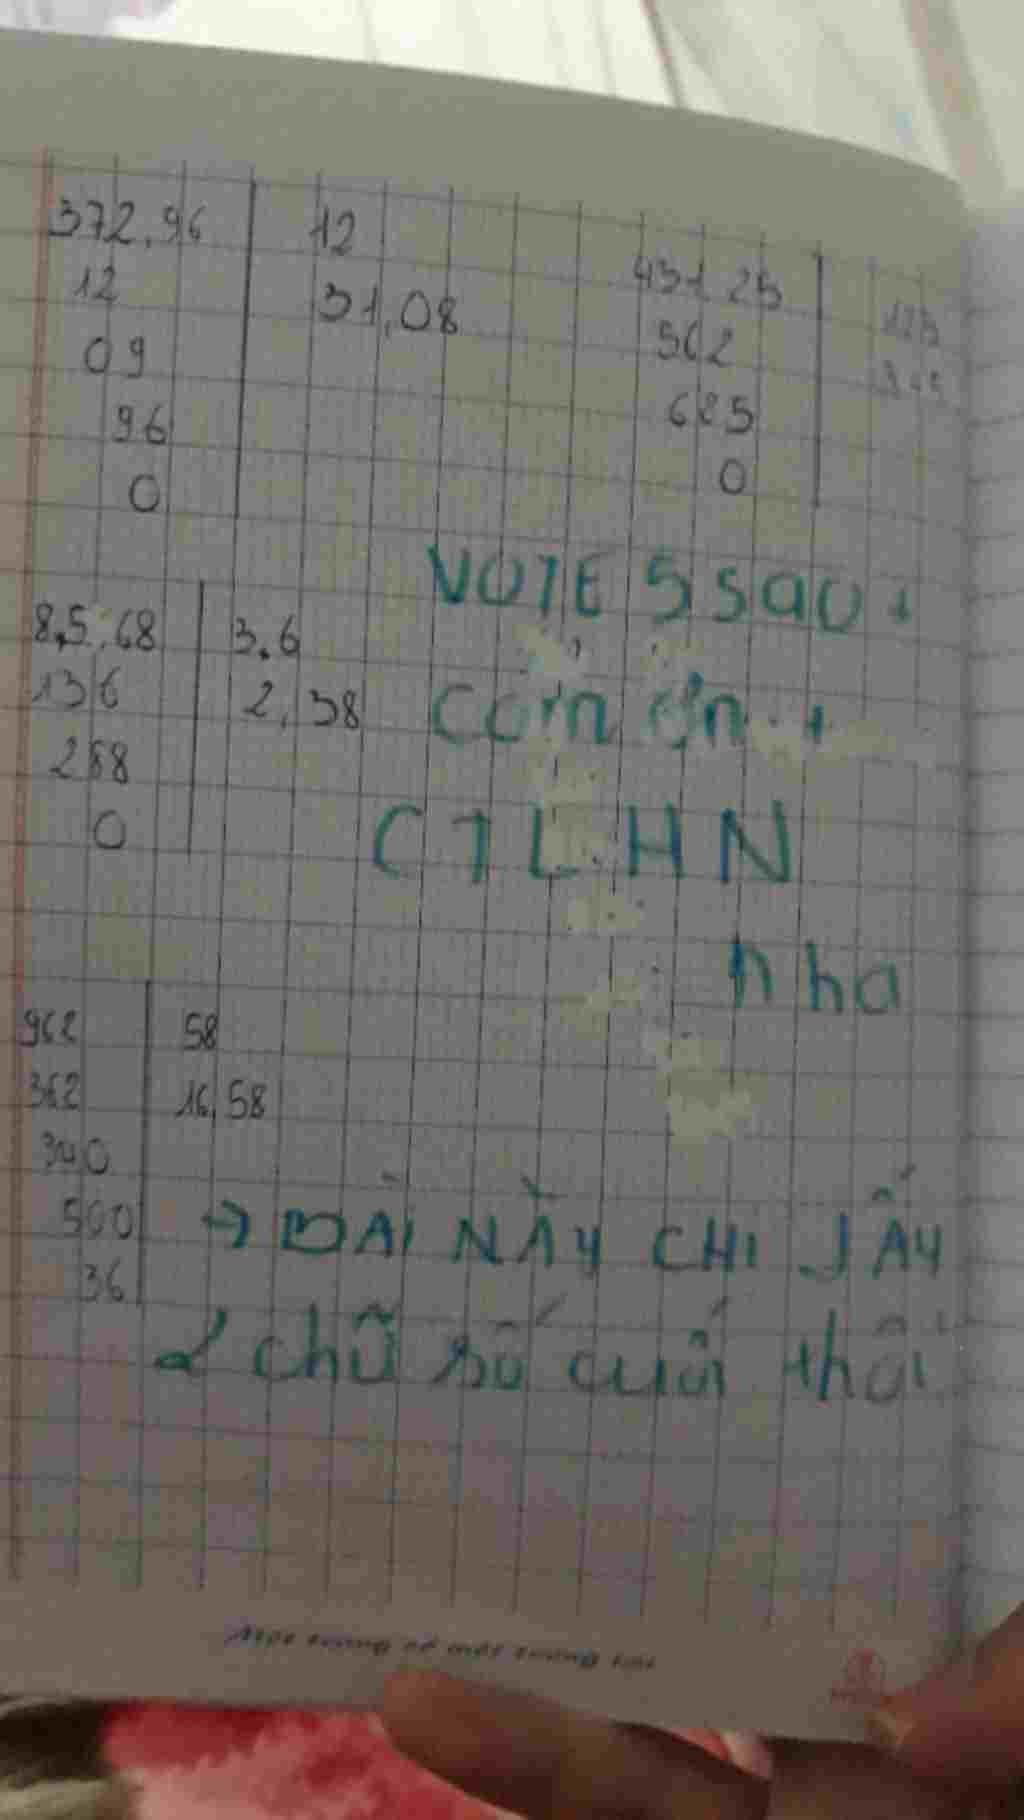 372,96 12
12 31,08
09
96
0
431,25 125
562 3,45
625
0
VOTE 5 SAO +
Cảm ơn +
CTLHN
nha
8,5,68 3,6
136 2,38
288
0
962 58
362 16,58
340
500
36
→ BÀI NÀY CHỈ LẤY
2 chữ số cuối thôi